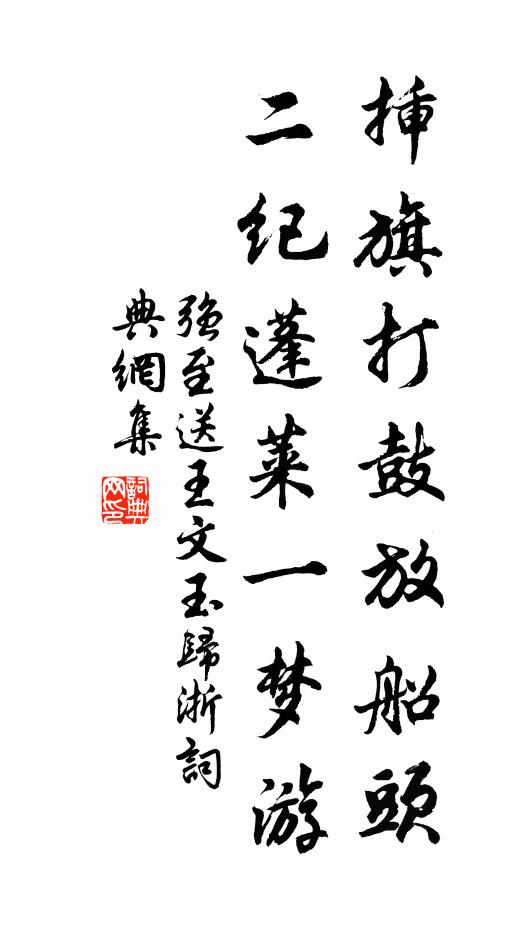 揷旗打鼓放船頭
二纪蓬莱一梦游
强至送王文玉歸浙詞
典網集
詞典
网印